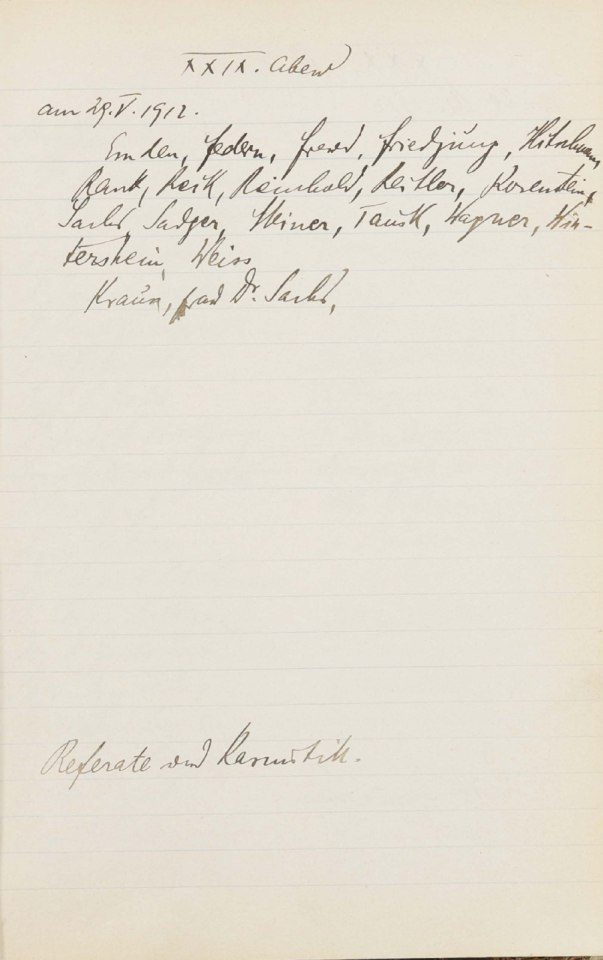 XXIX. Abend
am 29. V. 1912.
Emden, Federn, Freud, Friedjung, Hitschmann,
Rank, Reik, Reinhold, Reitler, Rosenstein,
Sachs, Sadger, Steiner, Tausk, Wagner, Win-
terstein, Weiss
Kraus, Frau Dr. Sachs,
Referate und Kasuistik.